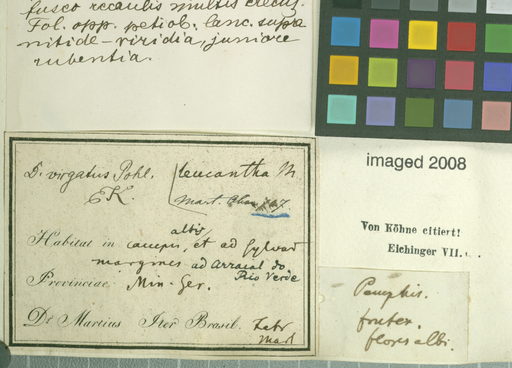 fusco recaulis multis erectis.
Fol. opp. petiol. lanc. supra
nitide-viridia, juniore
rubentia.
D. virgatus Pohl.
EK.
leucantha M
Mart.
Habitat in campis, albis, et ad Sylvar
margines ad Arraial do
Rio Verde
Provinciae Min. Ger.
Dr Martius Iter Brasil. Febr
Mart
imaged 2008
Von Köhne citiert!
Eichinger VII.
Pemphis.
frutex.
flores albi.